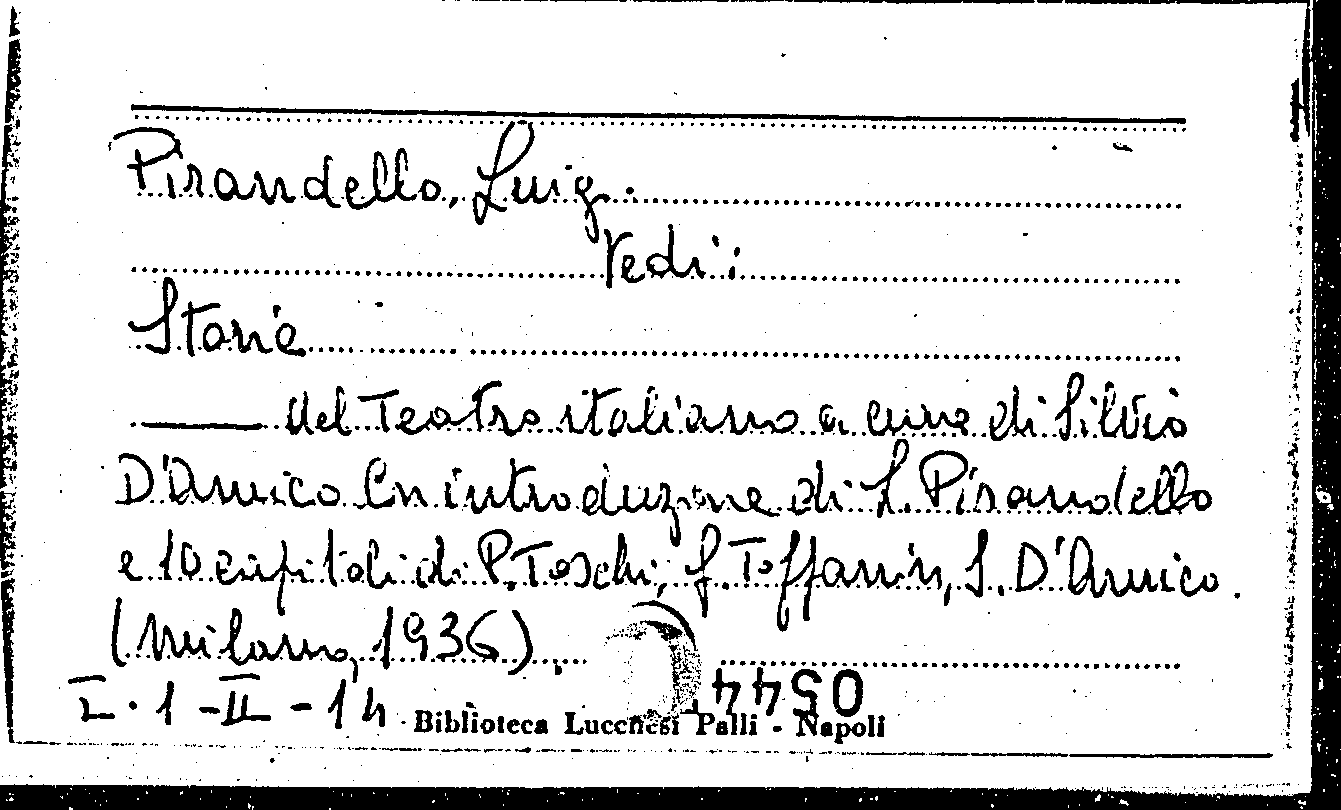 Pirandello, Luigi
Vedi:
Storia
——— del Teatro italiano a cura di Silvio
D'Amico Con introduzione di L. Pirandello
e 10 capitoli di P. Toschi, G. Toffanin, S. D'Amico.
(Milano, 1936).
0544
I. 1 - II - 14
Biblioteca Lucchesi Palli - Napoli